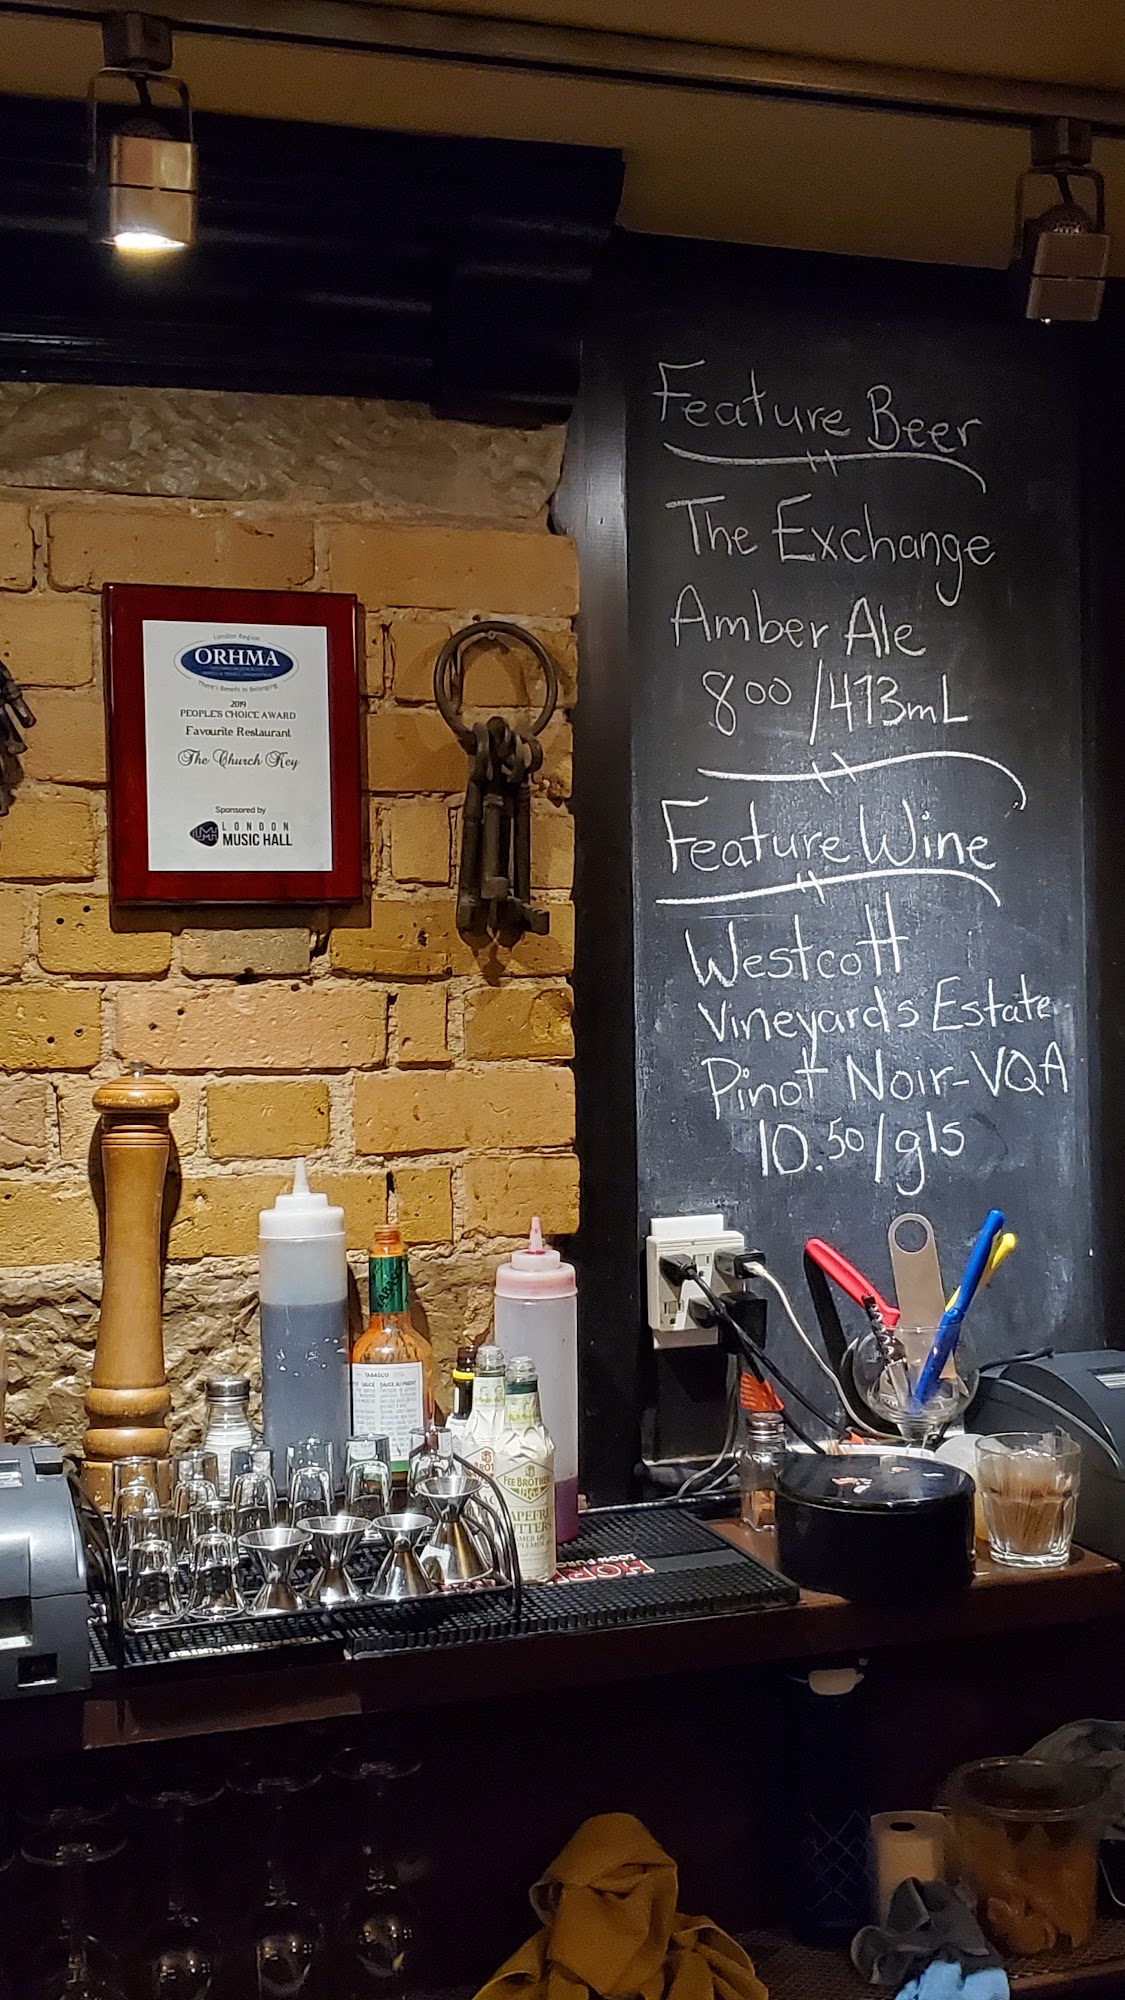 London Region
ORHMA
There's Benefit in Belonging
2019
PEOPLE'S CHOICE AWARD
Favourite Restaurant
The Church Key
Sponsored by
LMH
LONDON
MUSIC HALL
Feature Beer
The Exchange
Amber Ale
8⁰⁰/473mL
Feature Wine
Westcott
Vineyards Estate
Pinot Noir-VQA
10.⁵⁰/gls
TABASCO
SAUCE AU PIMENT
FEE BROTHERS